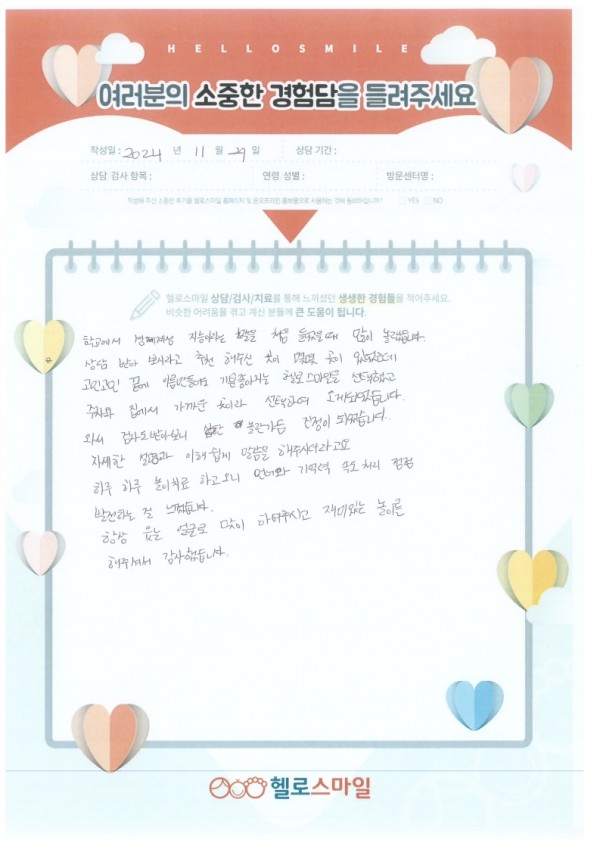 HELLOSMILE
여러분의 소중한 경험담을 들려주세요
작성일 : 2024 년 11 월 29 일 상담 기간 :
상담·검사 항목 : 연령·성별 : 방문센터명 :
작성해 주신 소중한 후기를 헬로스마일 홈페이지 및 온오프라인 홍보물으로 사용하는 것에 동의하십니까? YES NO
헬로스마일 상담/검사/치료를 통해 느끼셨던 생생한 경험들을 적어주세요.
비슷한 어려움을 겪고 계신 분들께 큰 도움이 됩니다.
학교에서 경계선성 지능이라는 말을 처음 들었을때 많이 놀랐습니다.
상담 받아 보시라고 추천 해주신 곳이 몇몇 곳이 있었는데
고민고민 끝에 이름만들어도 기분좋아지는 헬로스마일을 선택했고
주차와 집에서 가까운 곳이라 선택하여 오게되었습니다.
와서 검사도받아보니 불안가득 진정이 되었습니다.
자세한 설명과 이해쉽게 말씀을 해주시더라고요
하루 하루 놀이치료 하고오니 언어와 기억력 속도처리 점점
발전하는 걸 느꼈습니다.
항상 웃는 얼굴로 맞이 하여주시고 재미있는 놀이를
해주셔서 감사했습니다.
헬로스마일